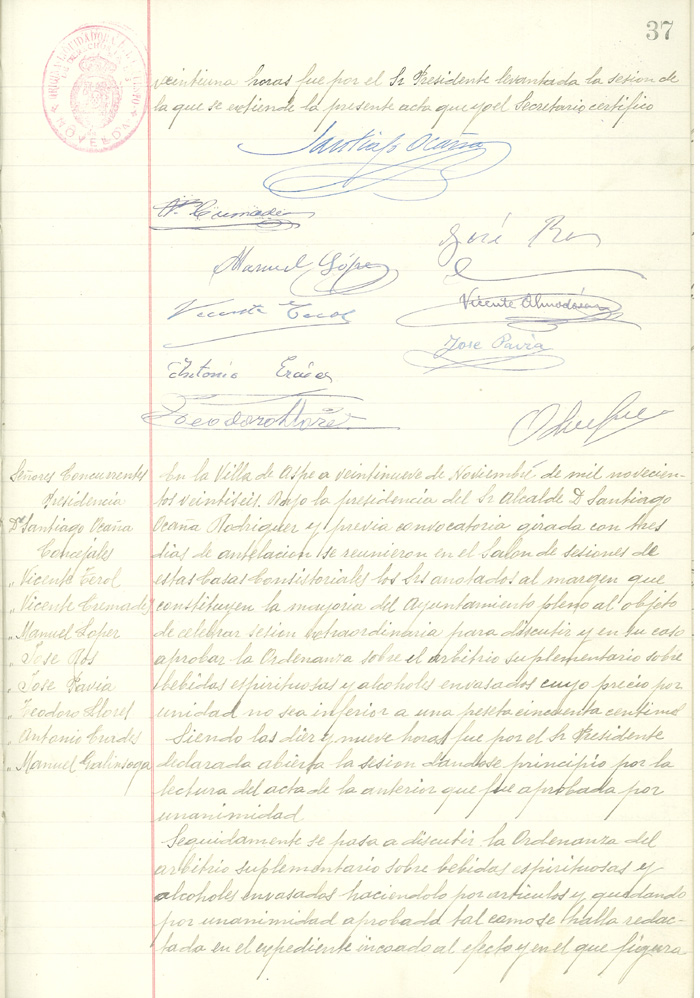 37
NOVELDA
veintiuna horas fue por el Sr Presidente levantada la sesion de
la que se extiende la presente acta que yo el Secretario certifico
Santiago Ocaña
V. Cremades
José Ros
Manuel López
Vicente Almodóvar
Vicente Terol
Jose Pavia
Antonio Erades
Teodoro Alores
Señores Concurrentes
Presidencia
Dn Santiago Ocaña
Concejales
" Vicente Terol
" Vicente Cremades
" Manuel Lopez
" Jose Ros
" Jose Pavia
" Teodoro Alores
" Antonio Erades
" Manuel Galinsoga
En la Villa de Aspe a veintinueve de Noviembre de mil novecien-
tos veintiseis. Bajo la presidencia del Sr Alcalde D Santiago
Ocaña Rodriguez y previa convocatoria girada con tres
dias de antelacion se reunieron en el Salon de sesiones de
estas Casas Consistoriales los Srs anotados al margen que
constituyen la mayoria del Ayuntamiento pleno al objeto
de celebrar sesion extraordinaria para discutir y en su caso
aprobar la Ordenanza sobre el arbitrio suplementario sobre
bebidas espirituosas y alcoholes envasados cuyo precio por
unidad no sea inferior a una peseta cincuenta centimos
Siendo las diez y nueve horas fue por el Sr Presidente
declarada abierta la sesion dandose principio por la
lectura del acta de la anterior que fue aprobada por
unanimidad
Seguidamente se pasa a discutir la Ordenanza del
arbitrio suplementario sobre bebidas espirituosas y
alcoholes envasados haciendolo por articulos y quedando
por unanimidad aprobada tal como se halla redac-
tada en el expediente incoado al efecto y en el que figura